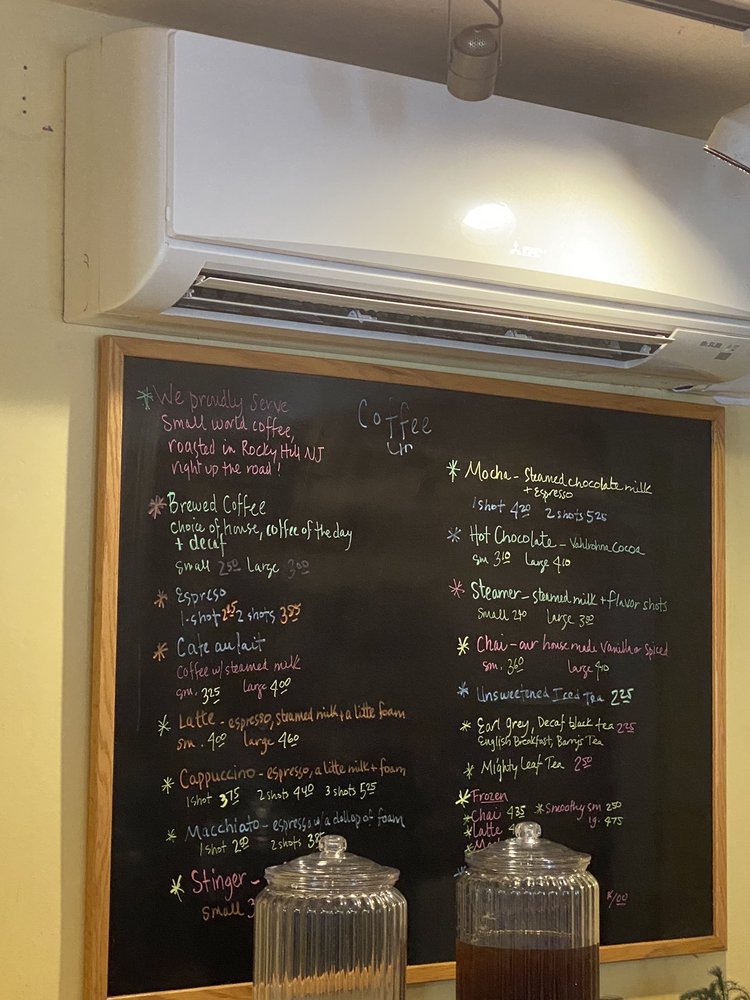 * We proudly serve
Small world coffee,
roasted in Rocky Hill NJ
right up the road!
Coffee
* Brewed Coffee
choice of house, coffee of the day
+ decaf
small 250 Large 300
* Espreso
1-shot 245 2 shots 355
* Cafe au lait
Coffee w/ steamed milk
sm. 325 Large 400
* Latte - espresso, steamed milk + a little foam
sm. 400 large 460
* Cappuccino - espresso, a little milk + foam
1 shot 375 2 shots 440 3 shots 525
* Macchiato - espresso w/ a dollop of foam
1 shot 280 2 shots
* Stinger -
Small
* Mocha - Steamed chocolate milk
+ Espresso
1 shot 420 2 shots 525
* Hot Chocolate - Vahlrohna Cocoa
sm. 310 Large 410
* Steamer - steamed milk + flavor shots
Small 240 Large
* Chai - our house made Vanilla or Spiced
sm. 360 Large
* Unsweetened Iced Tea 225
* Earl grey, Decaf black tea 225
English Breakfast, Barry's Tea
* Mighty Leaf Tea 250
* Frozen
* Chai 435 * Smoothy sm 250
* Latte lg. 475